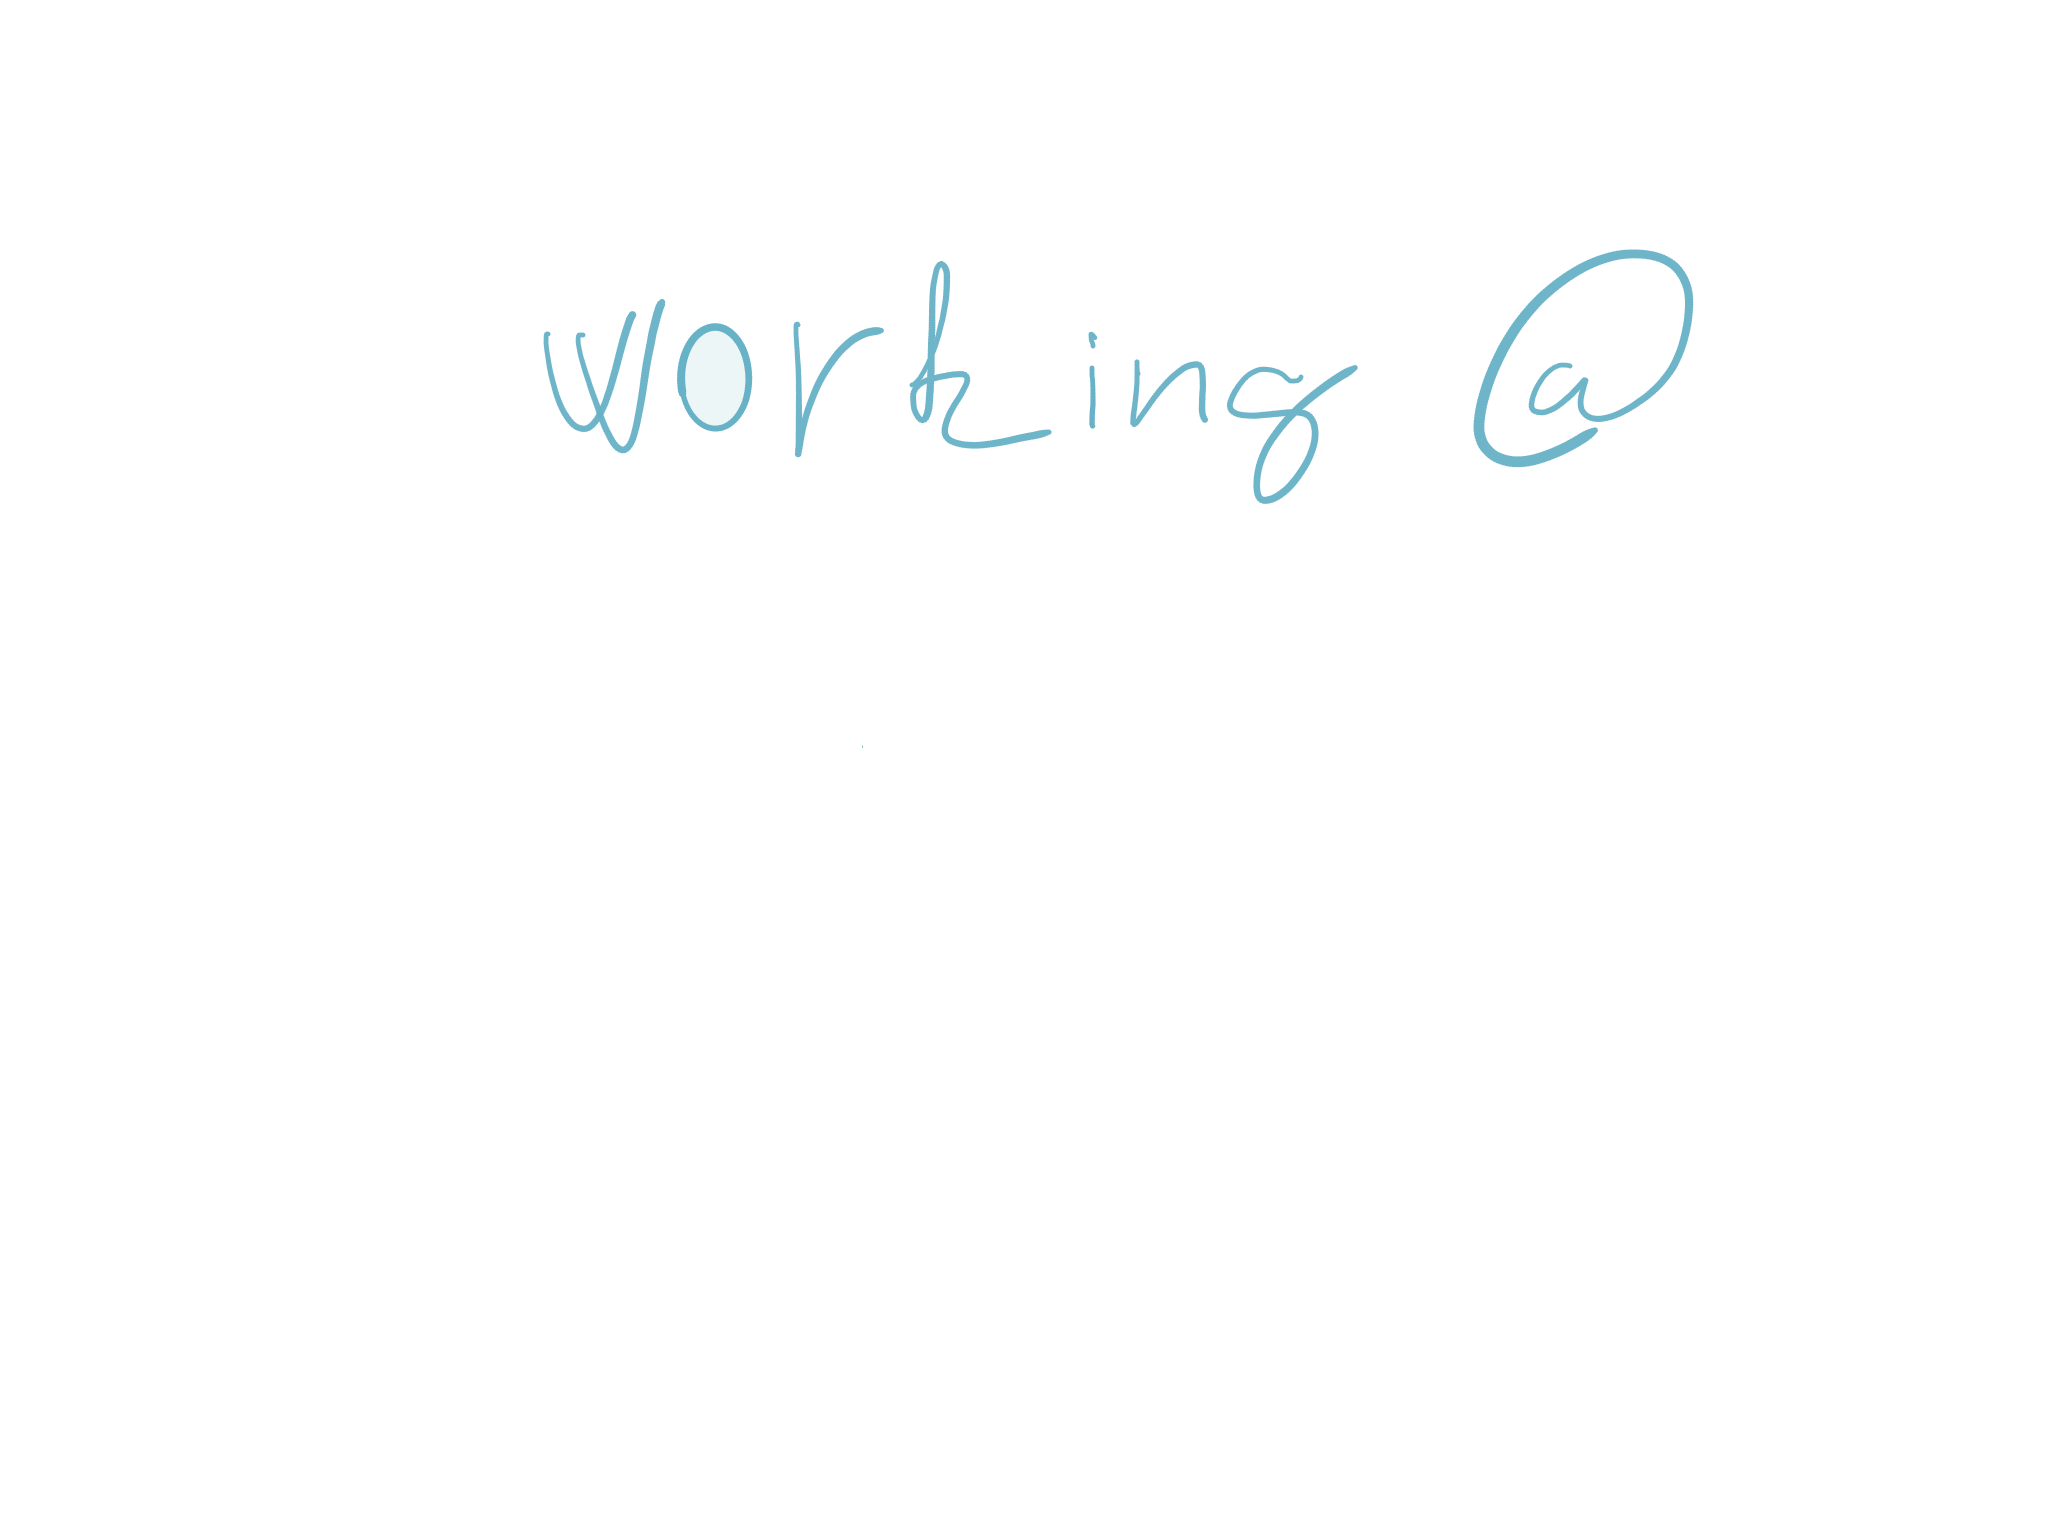 working @